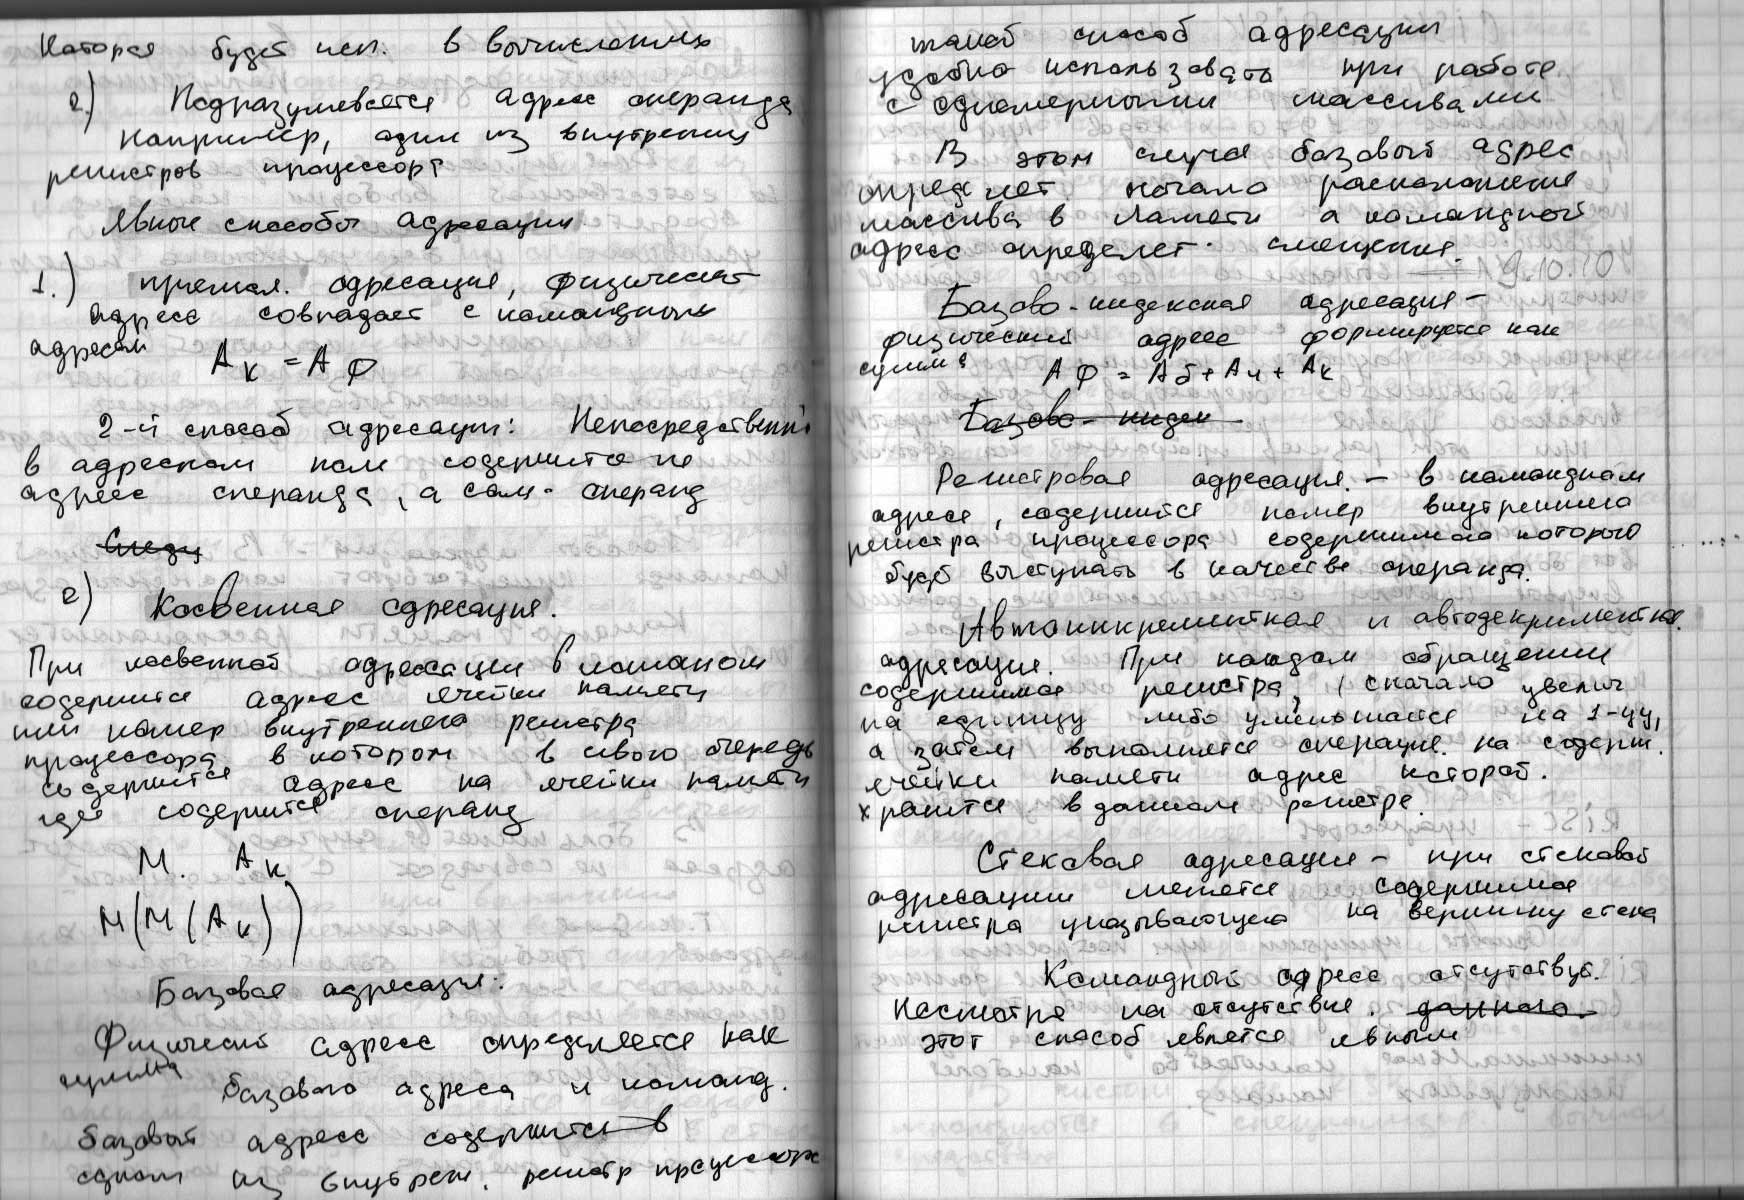 Которая будет исп. в вычислениях
2.) Подразумевается адрес операнда
например, один из внутренних
регистров процессора
Явные способы адресации
1.) прямая. адресация, физический
адрес совпадает с командным
адресом
Aк = AФ
2-й способ адресации: Непосредственный
в адресном поле содержится не
адрес операнда, а сам операнд
Следу
2) Косвенная адресация.
При косвенной адресации в командном
содержится адрес ячейки памяти
или номер внутреннего регистра
процессора в котором в свою очередь
содержится адрес на ячейки памяти
где содержится операнд
М. Aк
М(М(Aк))
Базовая адресация:
Физический адрес определяется как
сумма базового адреса и команд.
базовый адрес содержится в
одном из внутрен. регистр процессора
такой способ адресации
удобно использовать при работе
с одномерными массивами
В этом случае базовый адрес
определяет начало расположения
массива в памяти а командный
адрес определяет смещение.
19.10.10
Базово-индексная адресация –
физический адрес формируется как
сумма:
AФ = Aб + Aи + Aк
Базово-индек
Регистровая адресация. – в командном
адресе, содержится номер внутреннего
регистра процессора содержимое которого
будет выступать в качестве операнда.
Автоинкрементная и автодекриментная.
адресация. При каждом обращении
содержимое регистра, сначало увелич
на единицу либо уменьшается на 1-цу,
а затем выполняется операция. на содерж.
ячейки памяти адрес которой.
хранится в данном регистре.
Стековая адресация – при стековой
адресации меняется содержимое
регистра указывающую на вершину стека
Командный адресс отсутствует.
Несмотря на отсутствие. данного.
этот способ является явным